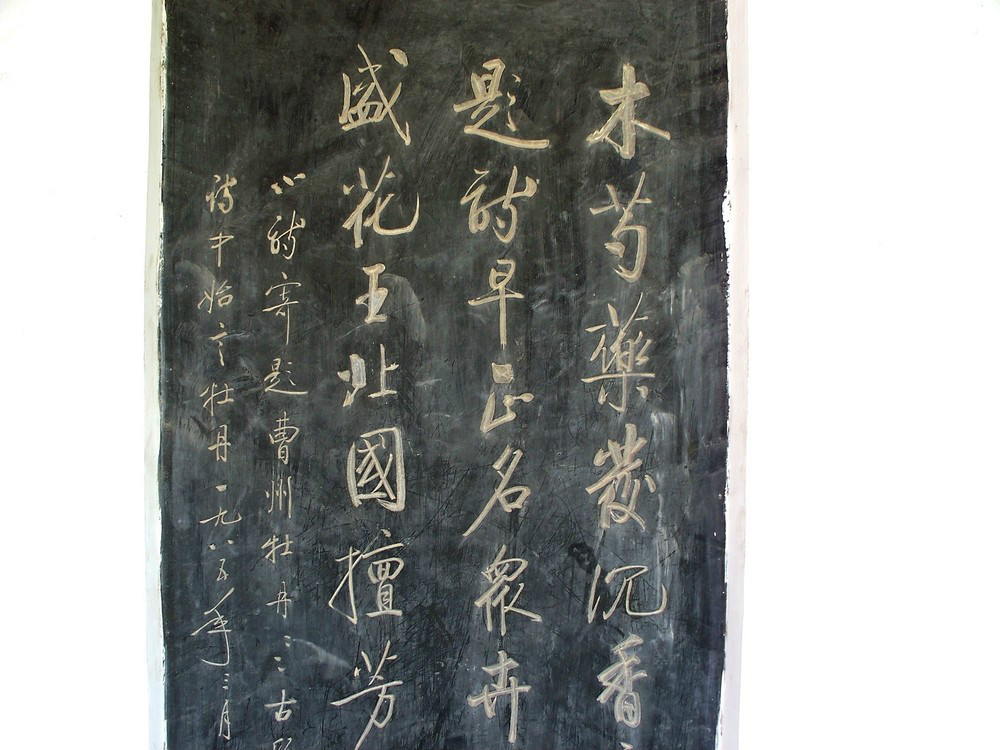 木芍藥發沉香
題詩早正名衆卉
盛花王北國擅芳
小詩寄題曹州牡丹三古
詩中始言牡丹一九八五年三月